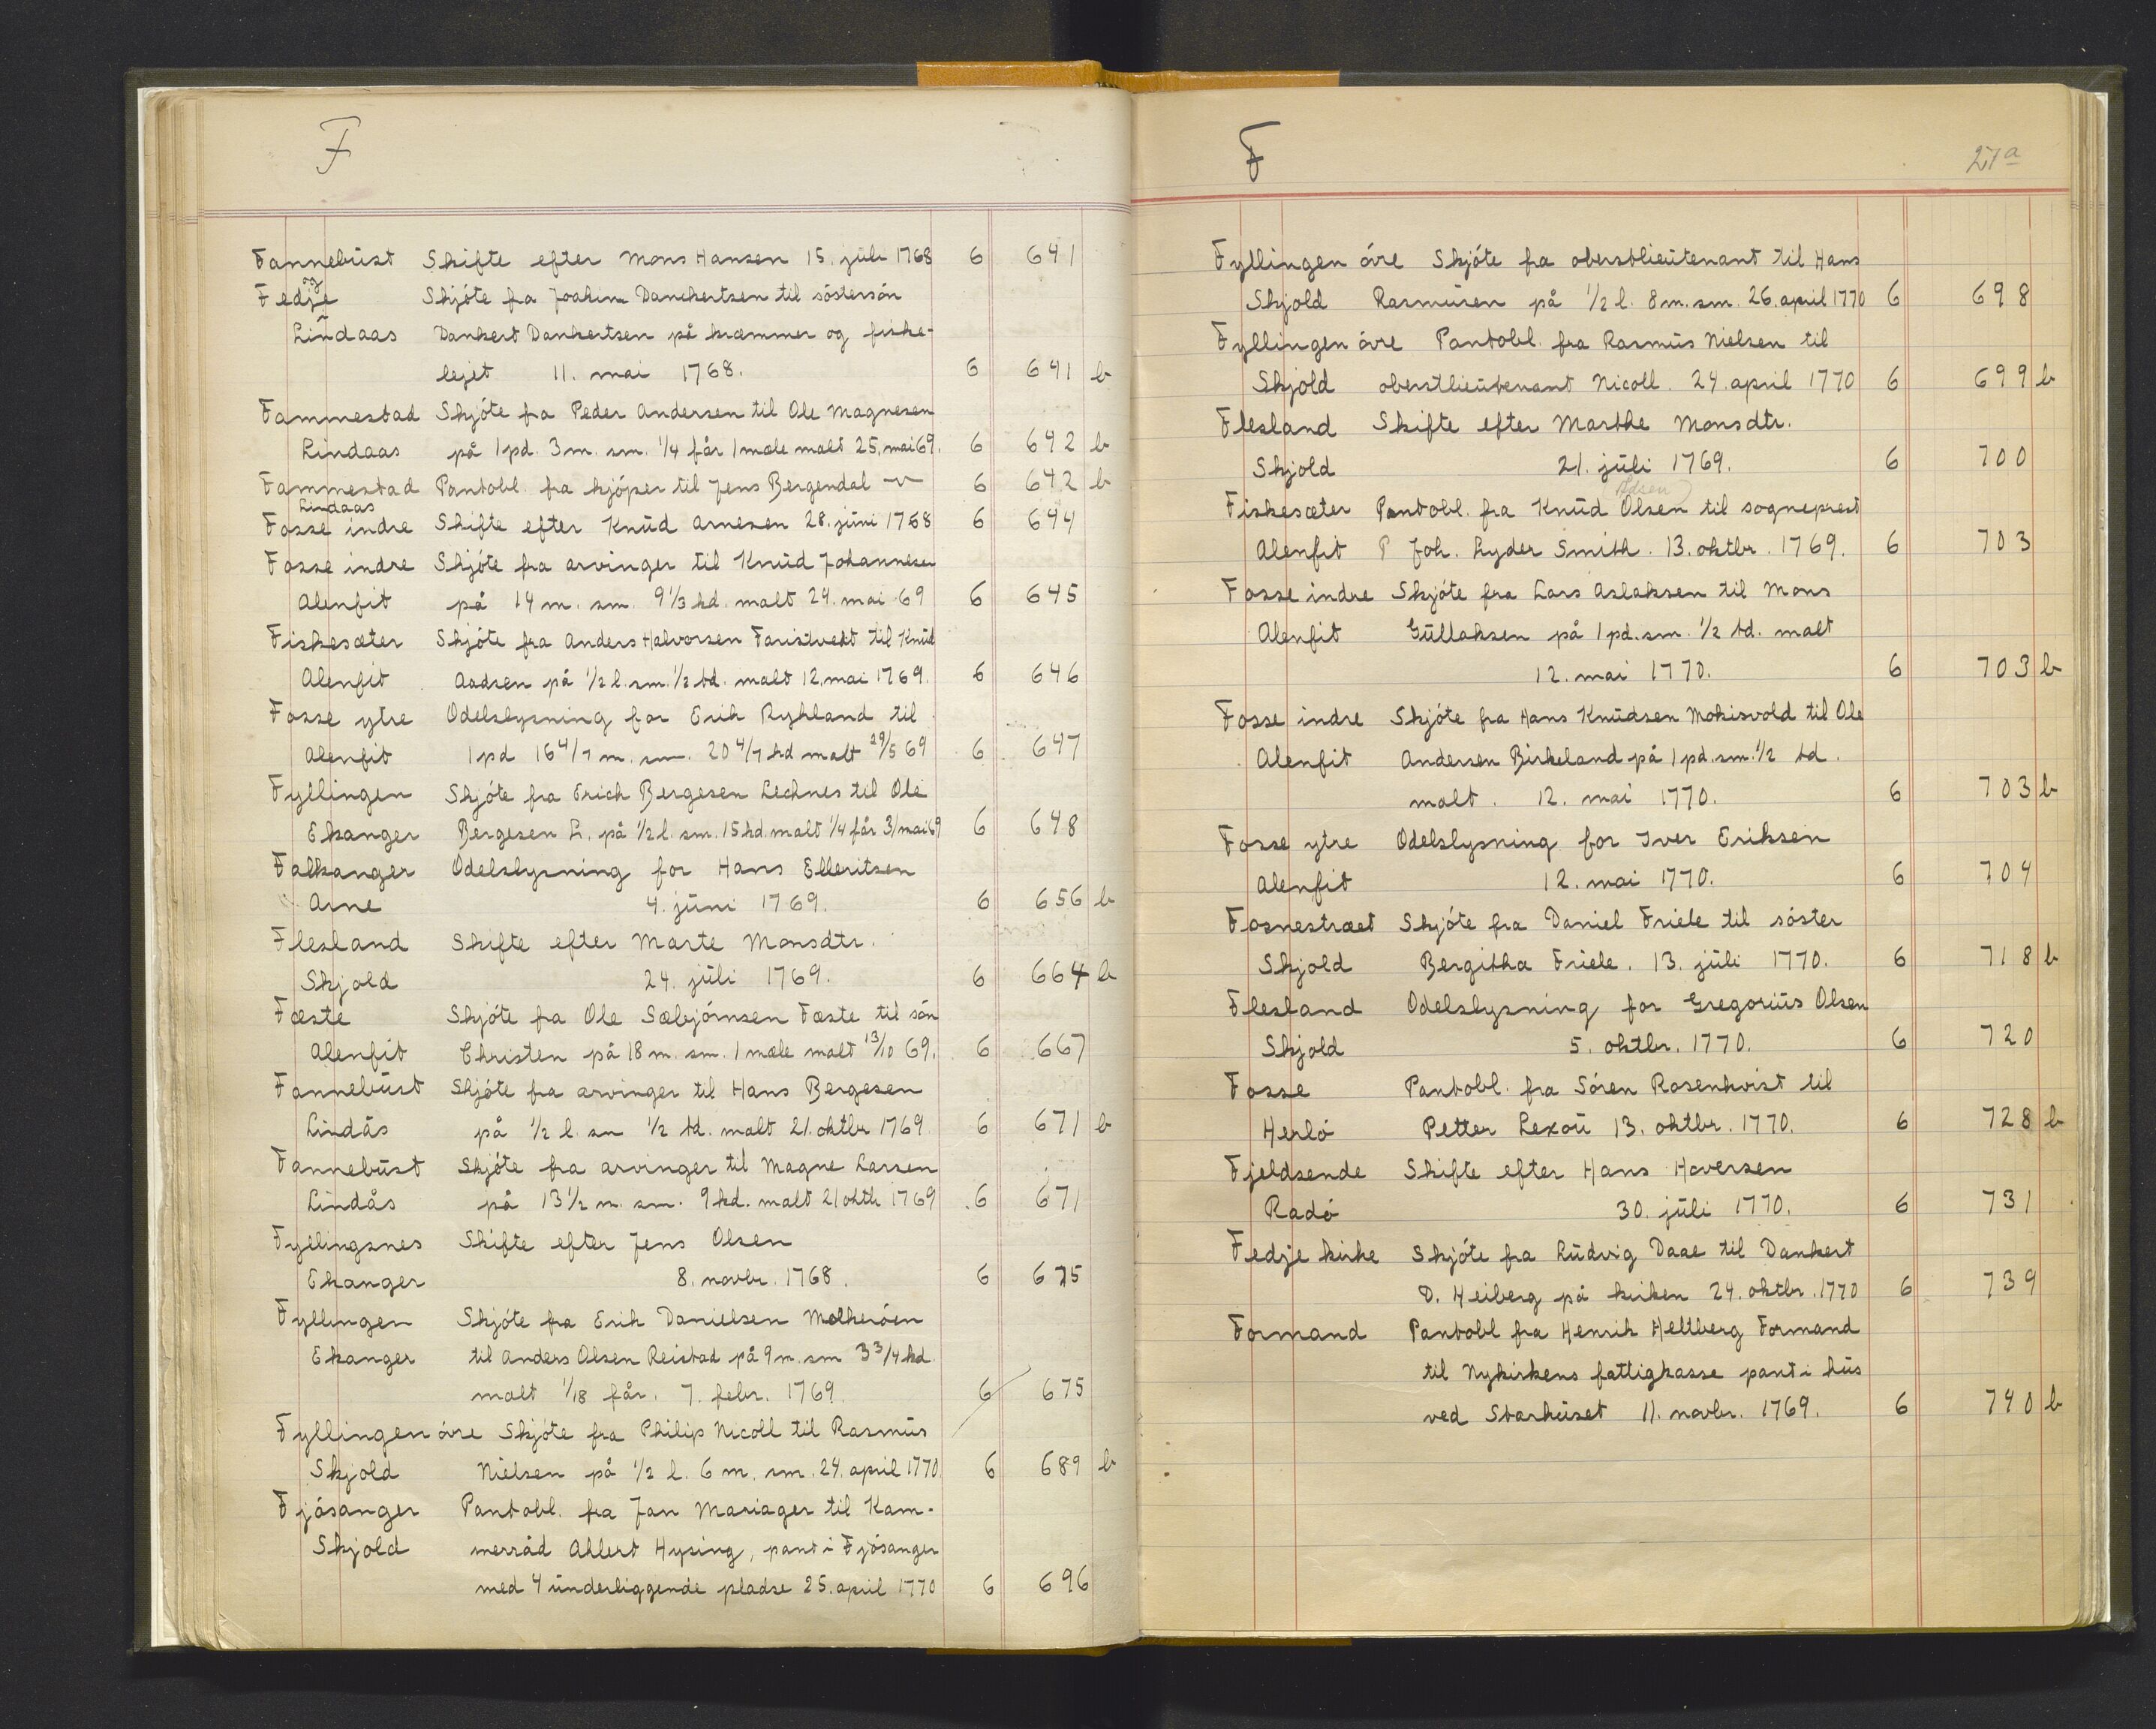 F
Fannebust Skifte efter Mons Hansen 15. juli 1768 6 641
og
Fedje Skjöte fra Joakim Danckertsen til söstersön
Lindaas Dankert Dankertsen på kræmmer og fiske-
lejet 11. mai 1768. 6 641 b
Fammestad Skjöte fra Peder Andersen til Ole Magnesen
Lindaas på 1 pd. 3 m. sm. 1/4 får 1 mæle malt 25. mai 69. 6 642 b
Fammestad Pantobl. fra kjöper til Jens Bergendal -v- 6 642 b
Lindaas
Fosse indre Skifte efter Knud Arnesen 28. juni 1768 6 644
Fosse indre Skjöte fra arvinger til Knud Johannesen
Alenfit på 14 m. sm. 9 1/3 kd. malt 24. mai 69 6 645
Fiskesæter Skjöte fra Anders Halvorsen Faristvedt til Knud
Alenfit Aadsen på 1/2 l. sm. 1/2 td. malt 12. mai 1769. 6 646
Fosse ytre Odelslysning for Erik Ryhland til
Alenfit 1 pd 16 4/7 m. sm. 20 4/7 kd malt 29/5 69 6 647
Fyllingen Skjöte fra Erich Bergesen Lechnes til Ole
Ekanger Bergesen L. på 1/2 l. sm. 15 kd. malt 1/4 får 31 mai 69 6 648
Falkanger Odelslysning for Hans Elleritsen
Arne 4. juni 1769. 6 656 b
Flesland Skifte efter Marte Monsdtr.
Skjold 24. juli 1769. 6 664 b
Fæste Skjöte fra Ole Sæbjörnsen Fæste til sön
Alenfit Christen på 18 m. sm. 1 mæle malt 13/10 69. 6 667
Fannebust Skjöte fra arvinger til Hans Bergesen
Lindås på 1/2 l. sm 1/2 td. malt 21. oktbr 1769. 6 671 b
Fannebust Skjöte fra arvinger til Magne Larsen
Lindås på 13 1/2 m. sm. 9 kd. malt 21 oktb 1769 6 671
Fyllingsnes Skifte efter Jens Olsen
Ekanger 8. novbr. 1768. 6 675
Fyllingen Skjöte fra Erik Danielsen Molheröen
Ekanger til Anders Olsen Reistad på 9 m. sm 3 3/4 kd.
malt 1/18 får. 7. febr. 1769. 6 675
Fyllingen övre Skjöte fra Philip Nicoll til Rasmus
Skjold Nielsen på 1/2 l. 6 m. sm. 24. april 1770. 6 689 b
Fjösanger Pantobl. fra Jan Mariager til Kam-
Skjold merråd Ahlert Hysing, pant i Fjösanger
med 4 underliggende pladse 25. april 1770 6 696
F 27a
Fyllingen övre Skjöte fra oberstlieutenant til Hans
Skjold Rasmusen på 1/2 l. 8 m. sm. 26. april 1770 6 698
Fyllingen övre Pantobl. fra Rasmus Nielsen til
Skjold oberstlieutenant Nicoll. 24. april 1770 6 699 b
Flesland Skifte efter Marthe Monsdtr.
Skjold 21. juli 1769. 6 700
Adsen)
Fiskesæter Pantobl. fra Knud Olsen til sogneprest
Alenfit P Joh. Lyder Smith. 13. oktbr. 1769. 6 703
Fosse indre Skjöte fra Lars Aslaksen til Mons
Alenfit Gullaksen på 1 pd. sm. 1/2 td. malt
12. mai 1770. 6 703 b
Fosse indre Skjöte fra Hans Knudsen Mokisvold til Ole
Alenfit Andersen Birkeland på 1 pd. sm. 1/2 td.
malt. 12. mai 1770. 6 703 b
Fosse ytre Odelslysning for Iver Eriksen
Alenfit 12. mai 1770. 6 704
Fosnestræet Skjöte fra Daniel Friele til söster
Skjold Bergitha Friele. 13. juli 1770. 6 718 b
Flesland Odelslysning for Gregorius Olsen
Skjold 5. oktbr. 1770. 6 720
Fosse Pantobl. fra Sören Rosenkvist til
Herlö Petter Lexou 13. oktbr. 1770. 6 728 b
Fjeldsende Skifte efter Hans Haversen
Radö 30. juli 1770. 6 731
Fedje kirke Skjöte fra Ludvig Daae til Dankert
D. Heiberg på kirken 24. oktbr. 1770 6 739
Formand Pantobl fra Henrik Heltberg Formand
til Nykirkens fattigkasse pant i hus
ved Starhuset 11. novbr. 1769. 6 740 b